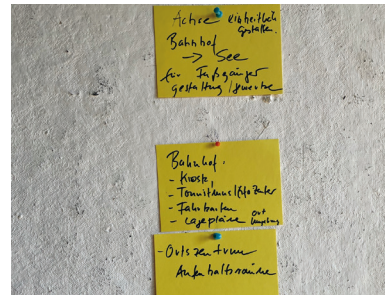 Achse einheitlich
gestalten.
Bahnhof
→ See
für Fußgänger
gestaltung / 
Bahnhof.
- Kioske,
- Tourismus/Infozenter
- Fahrkarten
- Lagepläne Ort
Umgebung
- Ortszentrum
Aufenthaltsräume